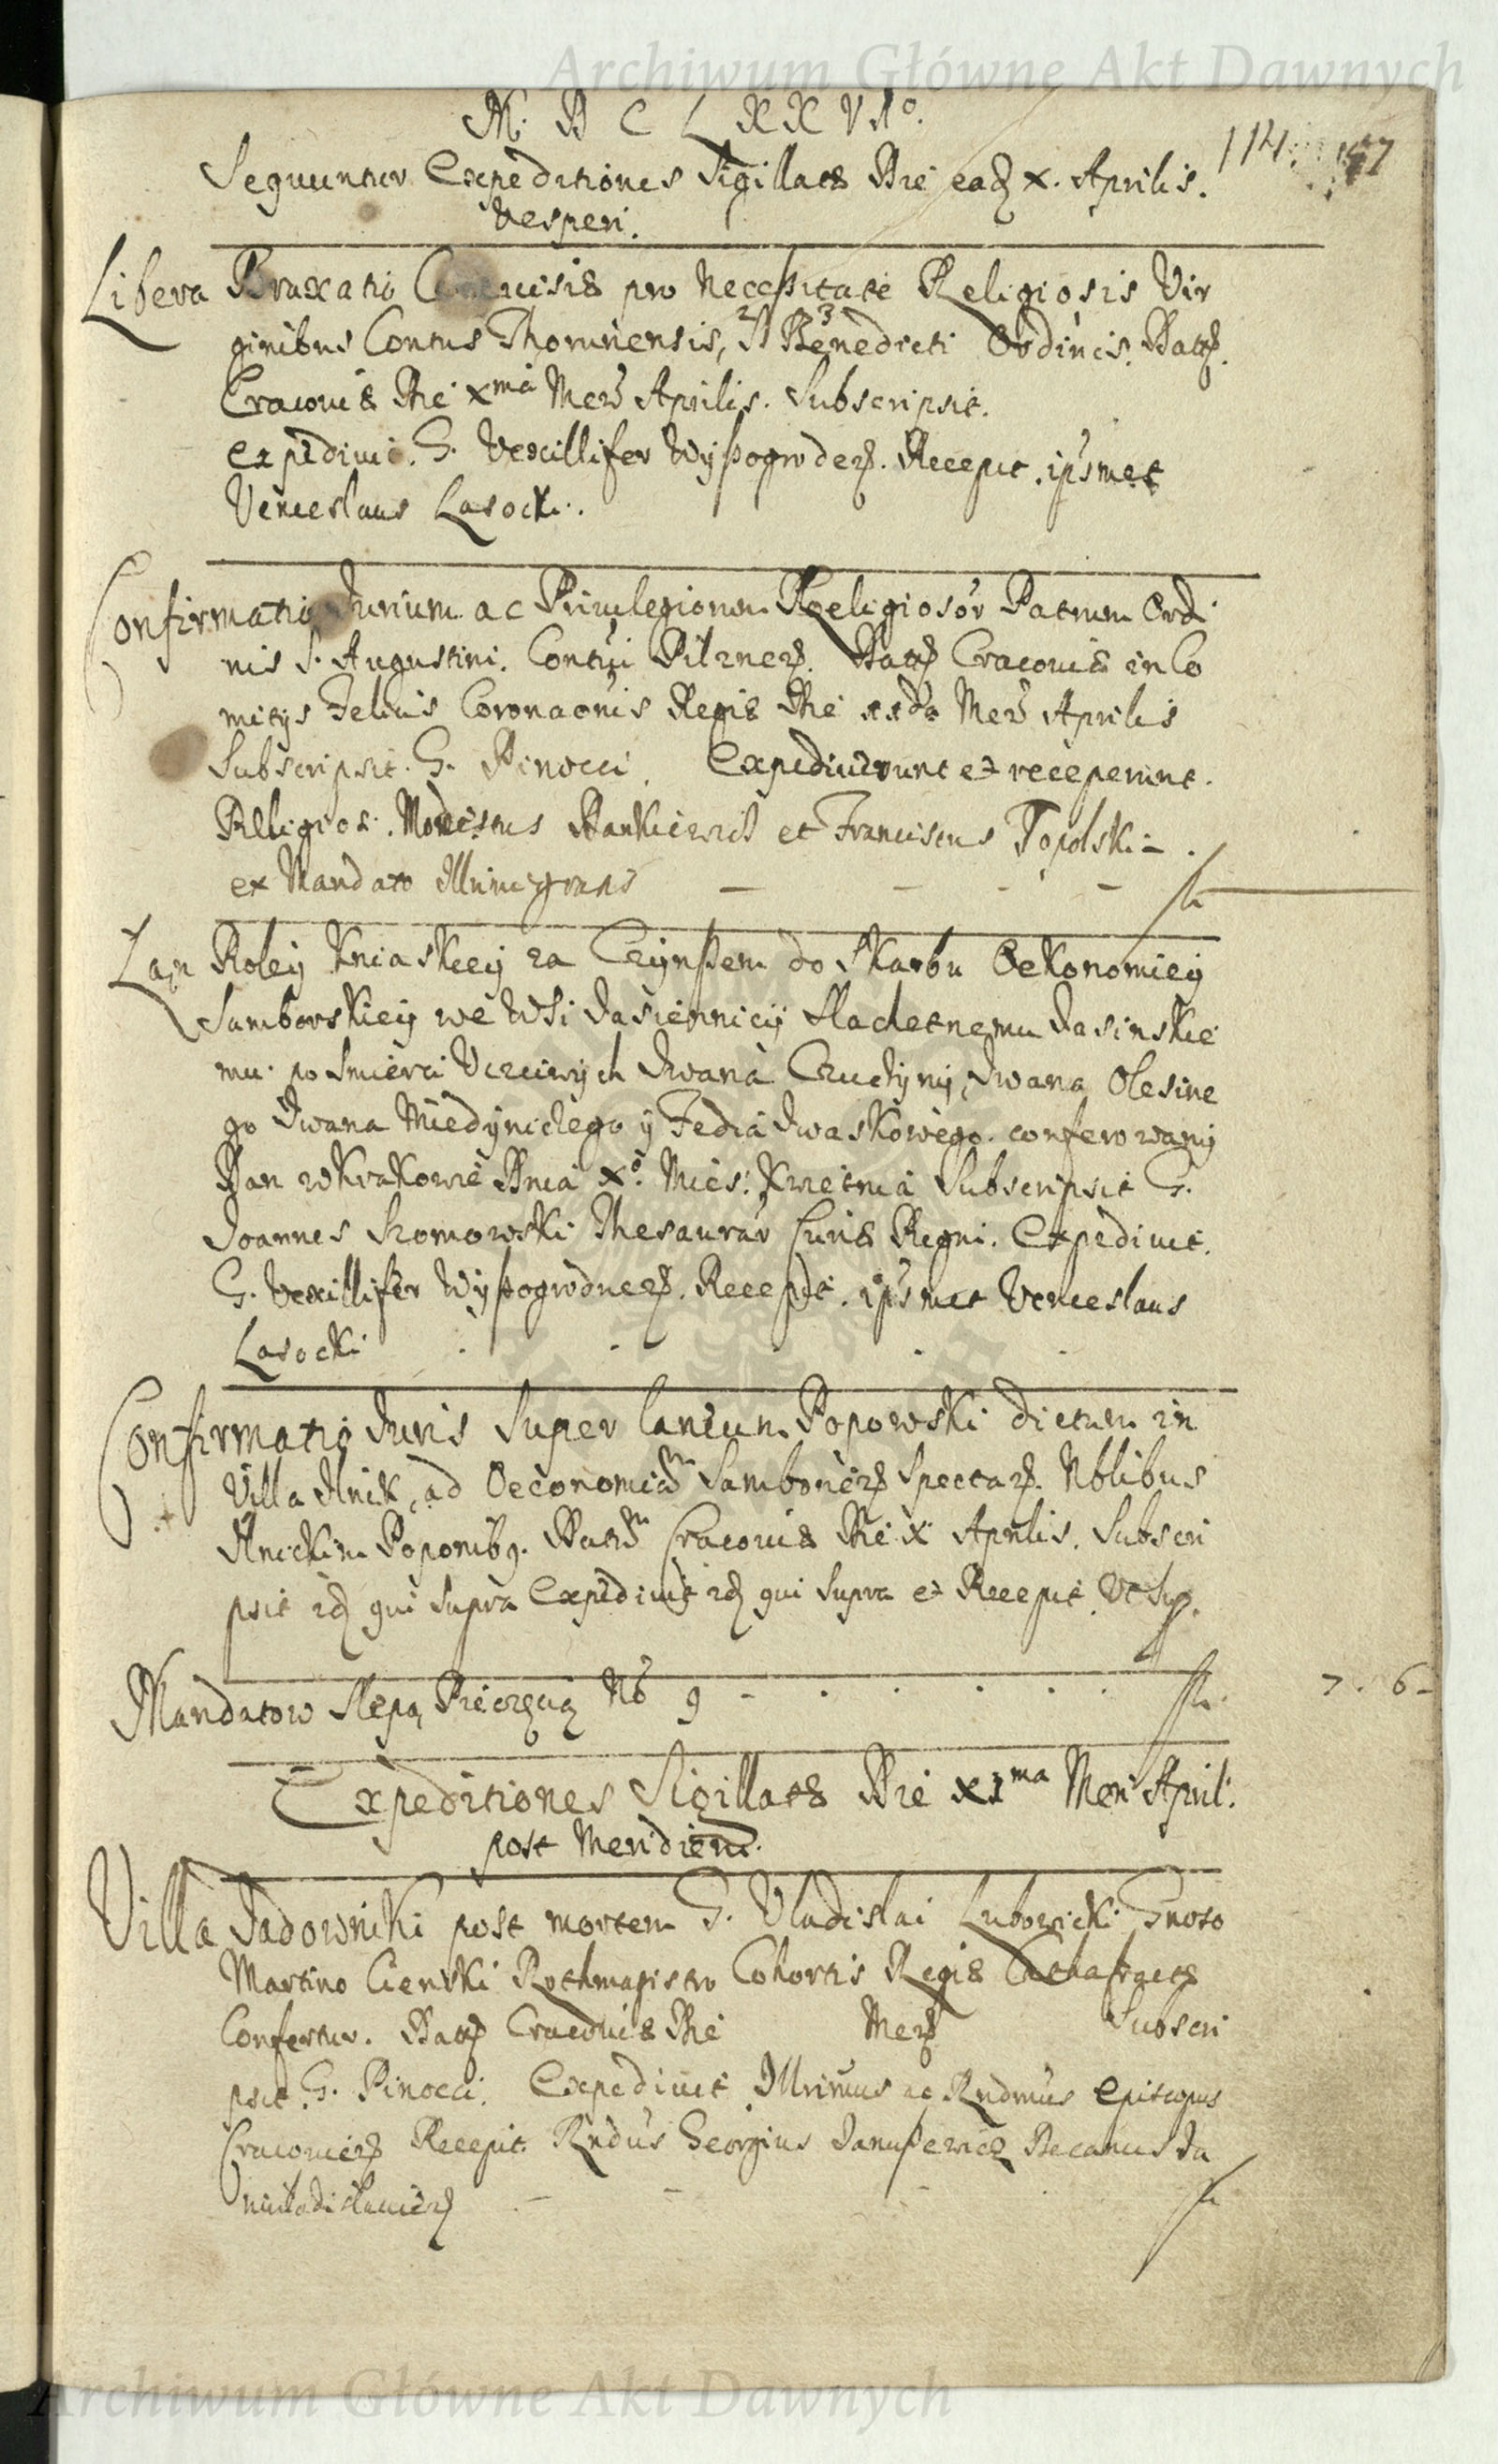 Archiwum Główne Akt Dawnych
M. D C L X X VI⁰.
114. 157
Sequuntur Expeditiones Sigillatæ Die eadꝫ X. Aprilis.
Vesperi.
Libera Braxatio Cereuisiæ pro necessitate Religiosis Vir
ginibus Contus Thorunensis, 2 S 3 Benedicti Ordinis. Datꝫ.
Cracouiæ Die Xma Mens Aprilis. Subscripsit.
expediuit. G. Vexillifer Wyßogrodens. Recepit. ipsmet
Venceslaus Lasocki.
Confirmatio Jurium ac Priuilegiorum Religiosor Patrum Ordi
nis S. Augustini. Contus Pilznens. Datꝫ Cracouiæ in Co
mitys Felicis Coronaonis Regiæ Die Mens Aprilis
Subscripsit. G. Pinocci. Expediuerunt et receperunt.
Religiosi. Modestus Dankiewicz et Franciscus Topolski –.
ex Mandato
Łan Roley Kniaskiey za Czynßem do Skarbu Oekonomiey
Samborskiey we Wsi Jasiennicÿ Slachetnemu Jasinskie
mu. po smierci Vczciwych Iwana Czuchyny, Iwana Olesine
go Iwana Miedynichego ÿ Fedia Iwaskowego. conferowany
Dan w Krakowie Dnia X⁰. Mies: Kwietnia Subscripsit G.
Joannes Szomowski Thesaurar Curiæ Regni. Expediuit.
G. Vexillifer Wyßogrodnens. Recepit. ipsmet Venceslaus
Lasocki
Confirmatio Juris Super laneum Popowski dictum in
Villa Ilnik, ad Oeconomiam Samboriens Spectans. Nblibus
Ilnickim Poponibꝫ. Datum Cracouiæ Die X Aprilis. Subscri
psit idꝫ qui supra Expediuit idꝫ qui supra et Recepit. Vt sup.
Mandatow Slepą Pieczęcią No 9 - . . . . . 7. 6-
Expeditiones Sigillatæ Die XIma Mens April:
post Meridiem.
Villa Jadowniki post mortem G. Vladislai Lubowicki Gnoso
Martino Cienski Rothmagistro Cohortis Regiæ Cathafractæ
Confertur. Datꝫ Cracouiæ Die Mens Subscri
psit G. Pinocci. Expediuit Illrimus ac Rndmus Episcopus
Cracouiens Recepit. Rndus Georgius Janußewicz Decanus Ju
niuladislauiens
Archiwum Główne Akt Dawnych